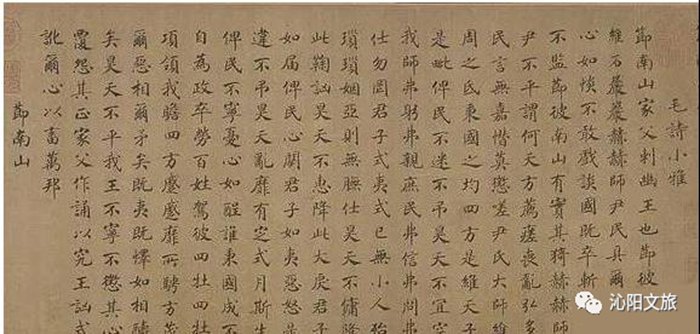 毛詩小雅
節南山家父刺幽王也節彼
維石巖巖赫赫師尹民具爾
心如惔不敢戲談國既卒斬
不監節彼南山有實其猗赫赫師
尹不平謂何天方薦瘥喪亂弘多
民言無嘉憯莫懲嗟尹氏大師維
周之氐秉國之均四方是維天子
是毗俾民不迷不弔昊天不宜空
我師弗躬弗親庶民弗信弗問
仕勿罔君子式夷式已無小人殆
瑣瑣姻亞則無膴仕昊天不傭降
此鞠訩昊天不惠降此大戾君子
如屆俾民心闋君子如夷惡怒是
違不弔昊天亂靡有定式月斯生
俾民不寧憂心如酲誰秉國成不
自為政卒勞百姓駕彼四牡四牡
項領我瞻四方蹙蹙靡所騁方茂
爾惡相爾矛矣既夷既懌如相醻
矣昊天不平我王不寧不懲其心
覆怨其正家父作誦以究王訩式
訛爾心以畜萬邦
節南山
沁阳文旅